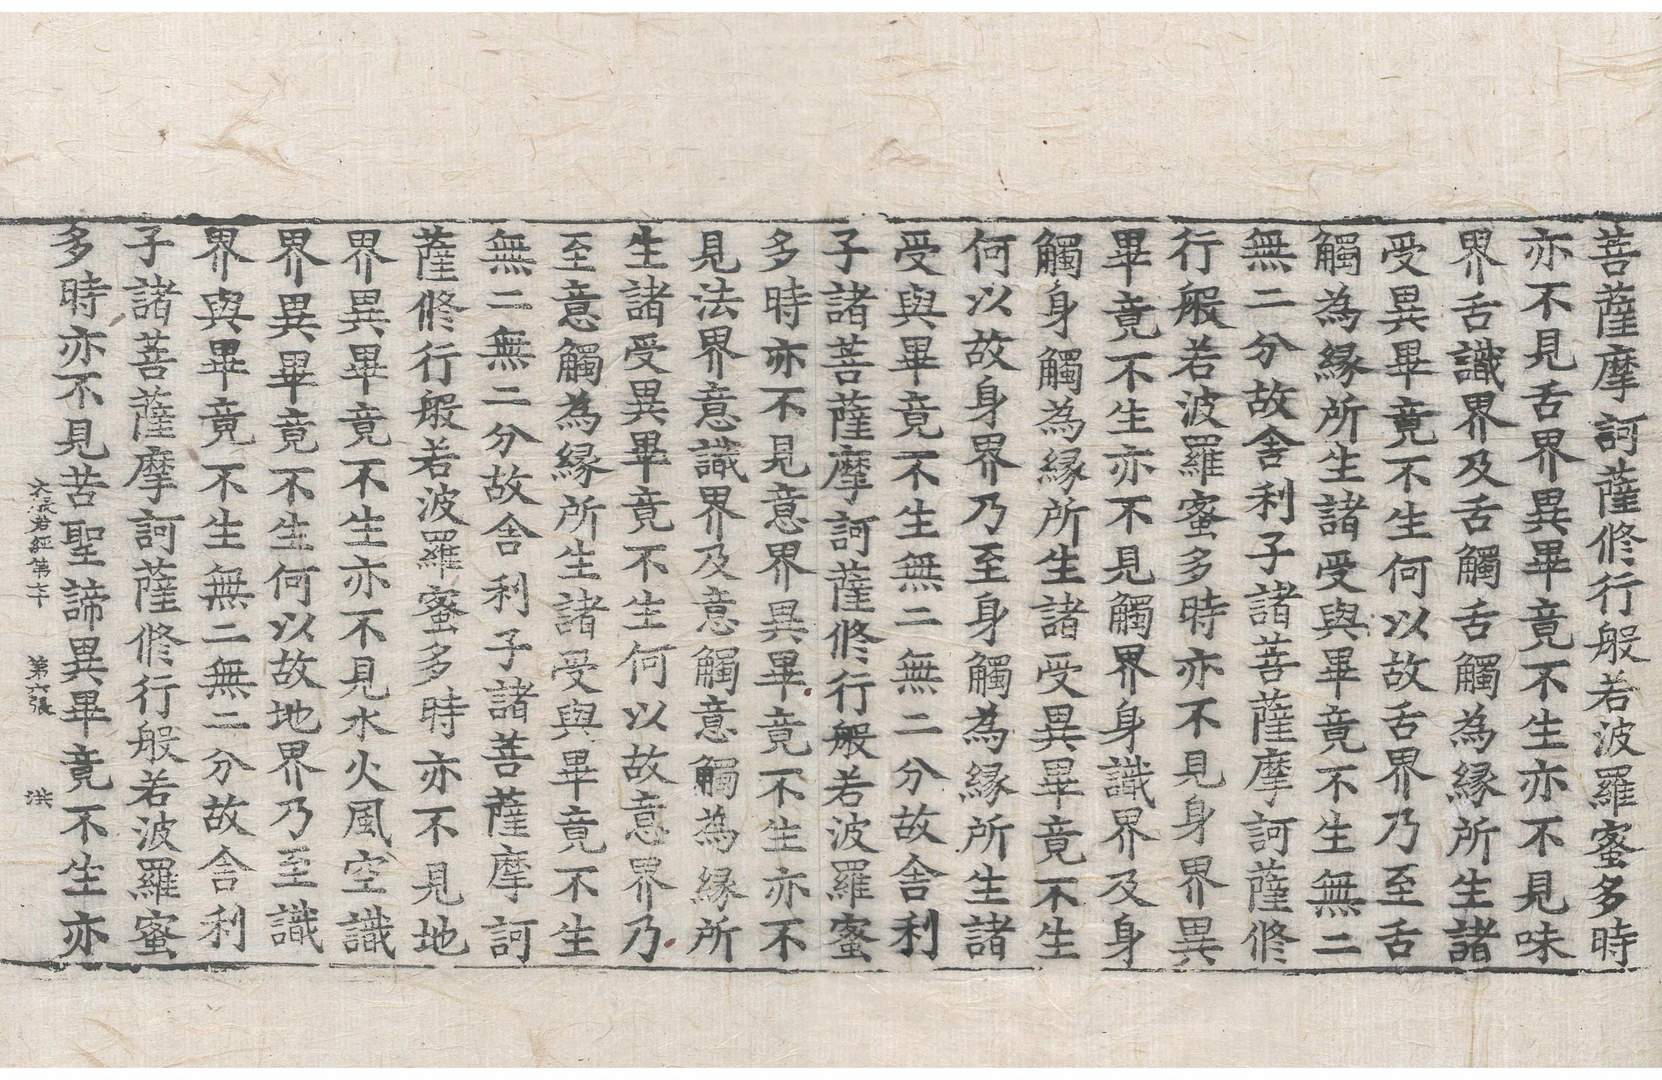 菩薩摩訶薩修行般若波羅蜜多時
亦不見舌界異畢竟不生亦不見味
界舌識界及舌觸舌觸為緣所生諸
受異畢竟不生何以故舌界乃至舌
觸為緣所生諸受與畢竟不生無二
無二分故舍利子諸菩薩摩訶薩修
行般若波羅蜜多時亦不見身界異
畢竟不生亦不見觸界身識界及身
觸身觸為緣所生諸受異畢竟不生
何以故身界乃至身觸為緣所生諸
受與畢竟不生無二無二分故舍利
子諸菩薩摩訶薩修行般若波羅蜜
多時亦不見意界異畢竟不生亦不
見法界意識界及意觸意觸為緣所
生諸受異畢竟不生何以故意界乃
至意觸為緣所生諸受與畢竟不生
無二無二分故舍利子諸菩薩摩訶
薩修行般若波羅蜜多時亦不見地
界異畢竟不生亦不見水火風空識
界異畢竟不生何以故地界乃至識
界與畢竟不生無二無二分故舍利
子諸菩薩摩訶薩修行般若波羅蜜
多時亦不見苦聖諦異畢竟不生亦
大般若經第七十 第六張 洪